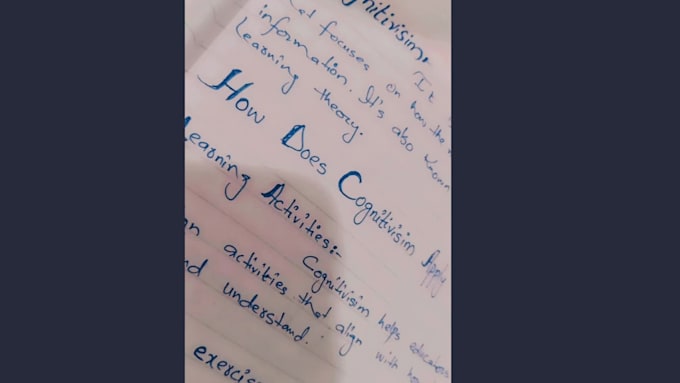 It
et focuses on how the
information. It's also known
Learning theory.
How Does Cognitivism Apply
Learning Activities:-
Cognitivism helps
activities that align with
understand.